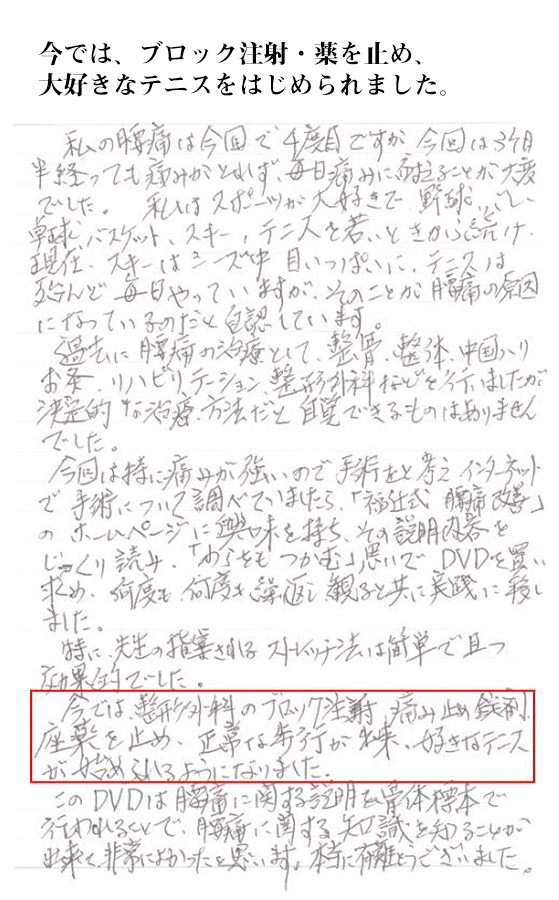 今では、ブロック注射・薬を止め、
大好きなテニスをはじめられました。
私の腰痛は今回で4度目ですが、今回は3ヶ月
半経っても痛みがとれず、毎日痛みに耐えることが大変
でした。 私はスポーツが大好きで、野球、バレー、
卓球、バスケット、スキー、テニスを若いときから続け、
現在、スキーはシーズン中目いっぱいに、テニスは
殆んど毎日やっていますが、そのことが腰痛の原因
になっているのだと自認しています。
過去に腰痛の治療として、整骨、整体、中国ハリ
お灸、リハビリテーション、整形外科などを行いましたが
決定的な治療方法だと自覚できるものはありません
でした。
今回は特に痛みが強いので手術をと考え インターネット
で手術について調べていましたら、「福辻式 腰痛改善」
のホームページに興味を持ち、その説明内容を
じっくり読み、「わらをもつかむ」思いでDVDを買い
求め、何度も何度も繰返し観ると共に実践に移し
ました。
特に、先生の指導されるストレッチ法は簡単で且つ
効果的でした。
今では、整形外科のブロック注射、痛み止め錠剤、
座薬を止め、正常な歩行が出来、好きなテニス
が始められるようになりました。
このDVDは腰痛に関する説明を骨体標本で
行われることで、腰痛に関する知識を知ることが
出来て、非常によかったと思います。本当に有難とうございました。